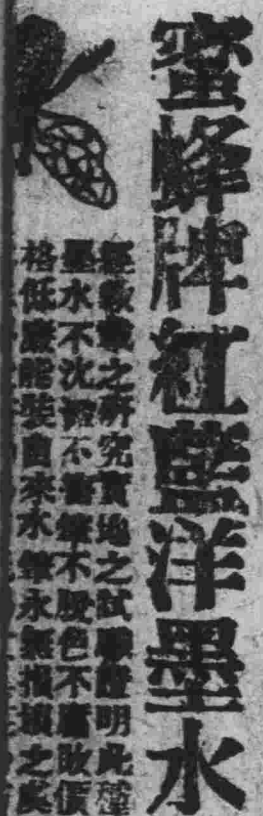 蜜蜂牌紅藍洋墨水
經數之研究實地之試驗證明此種
墨水不沈澱不筆不脫色不腐敗價
格低廉能裝自來水筆永無損壞之虞